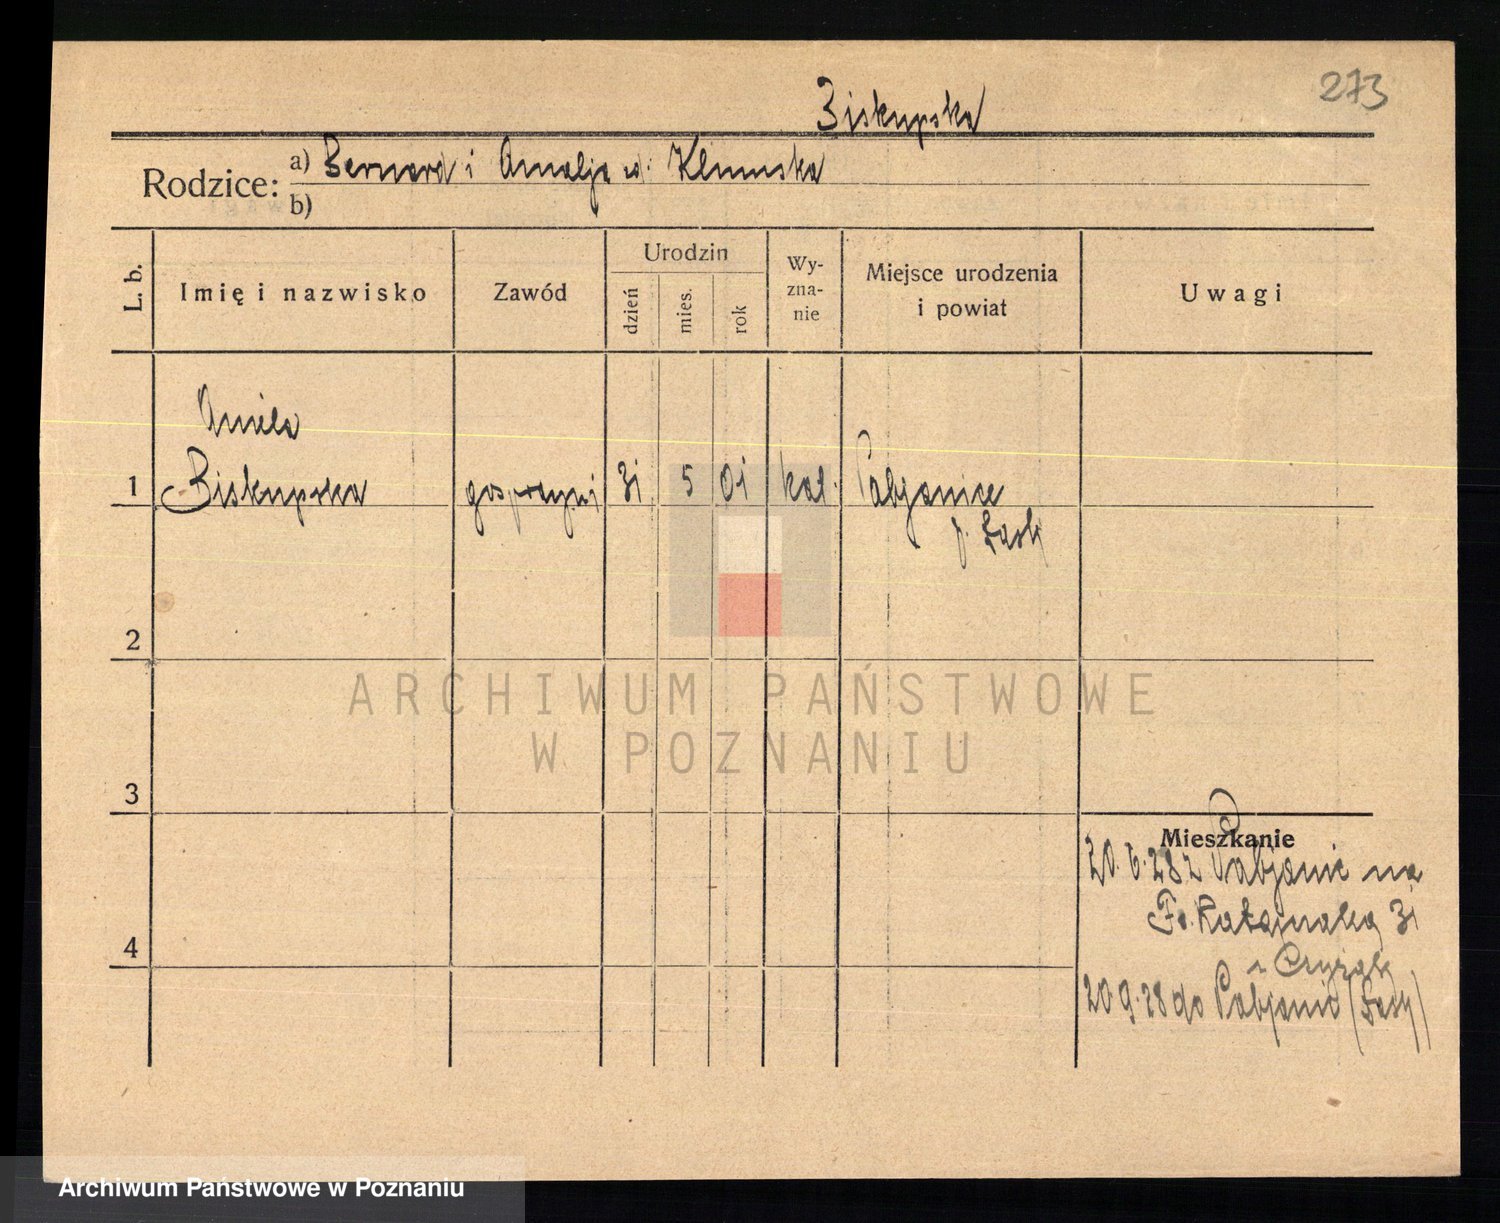 273
Biskupska
Rodzice: a) Bernard i Amalja
b)
L. b.
Imię i nazwisko
Zawód
Urodzin
dzień
mies.
rok
Wy-
zna-
nie
Miejsce urodzenia
i powiat
Uwagi
Aniela
1 Biskupska gospodyni 31 5 01 kat. Pabjanice
p. Łask
2
ARCHIWUM PAŃSTWOWE
W POZNANIU
3
Mieszkanie
20.6.28 z Pabjanic na
Fr. Ratajczaka 31
4
u
20.9.28 do Pabjanic (Łask)
Archiwum Państwowe w Poznaniu